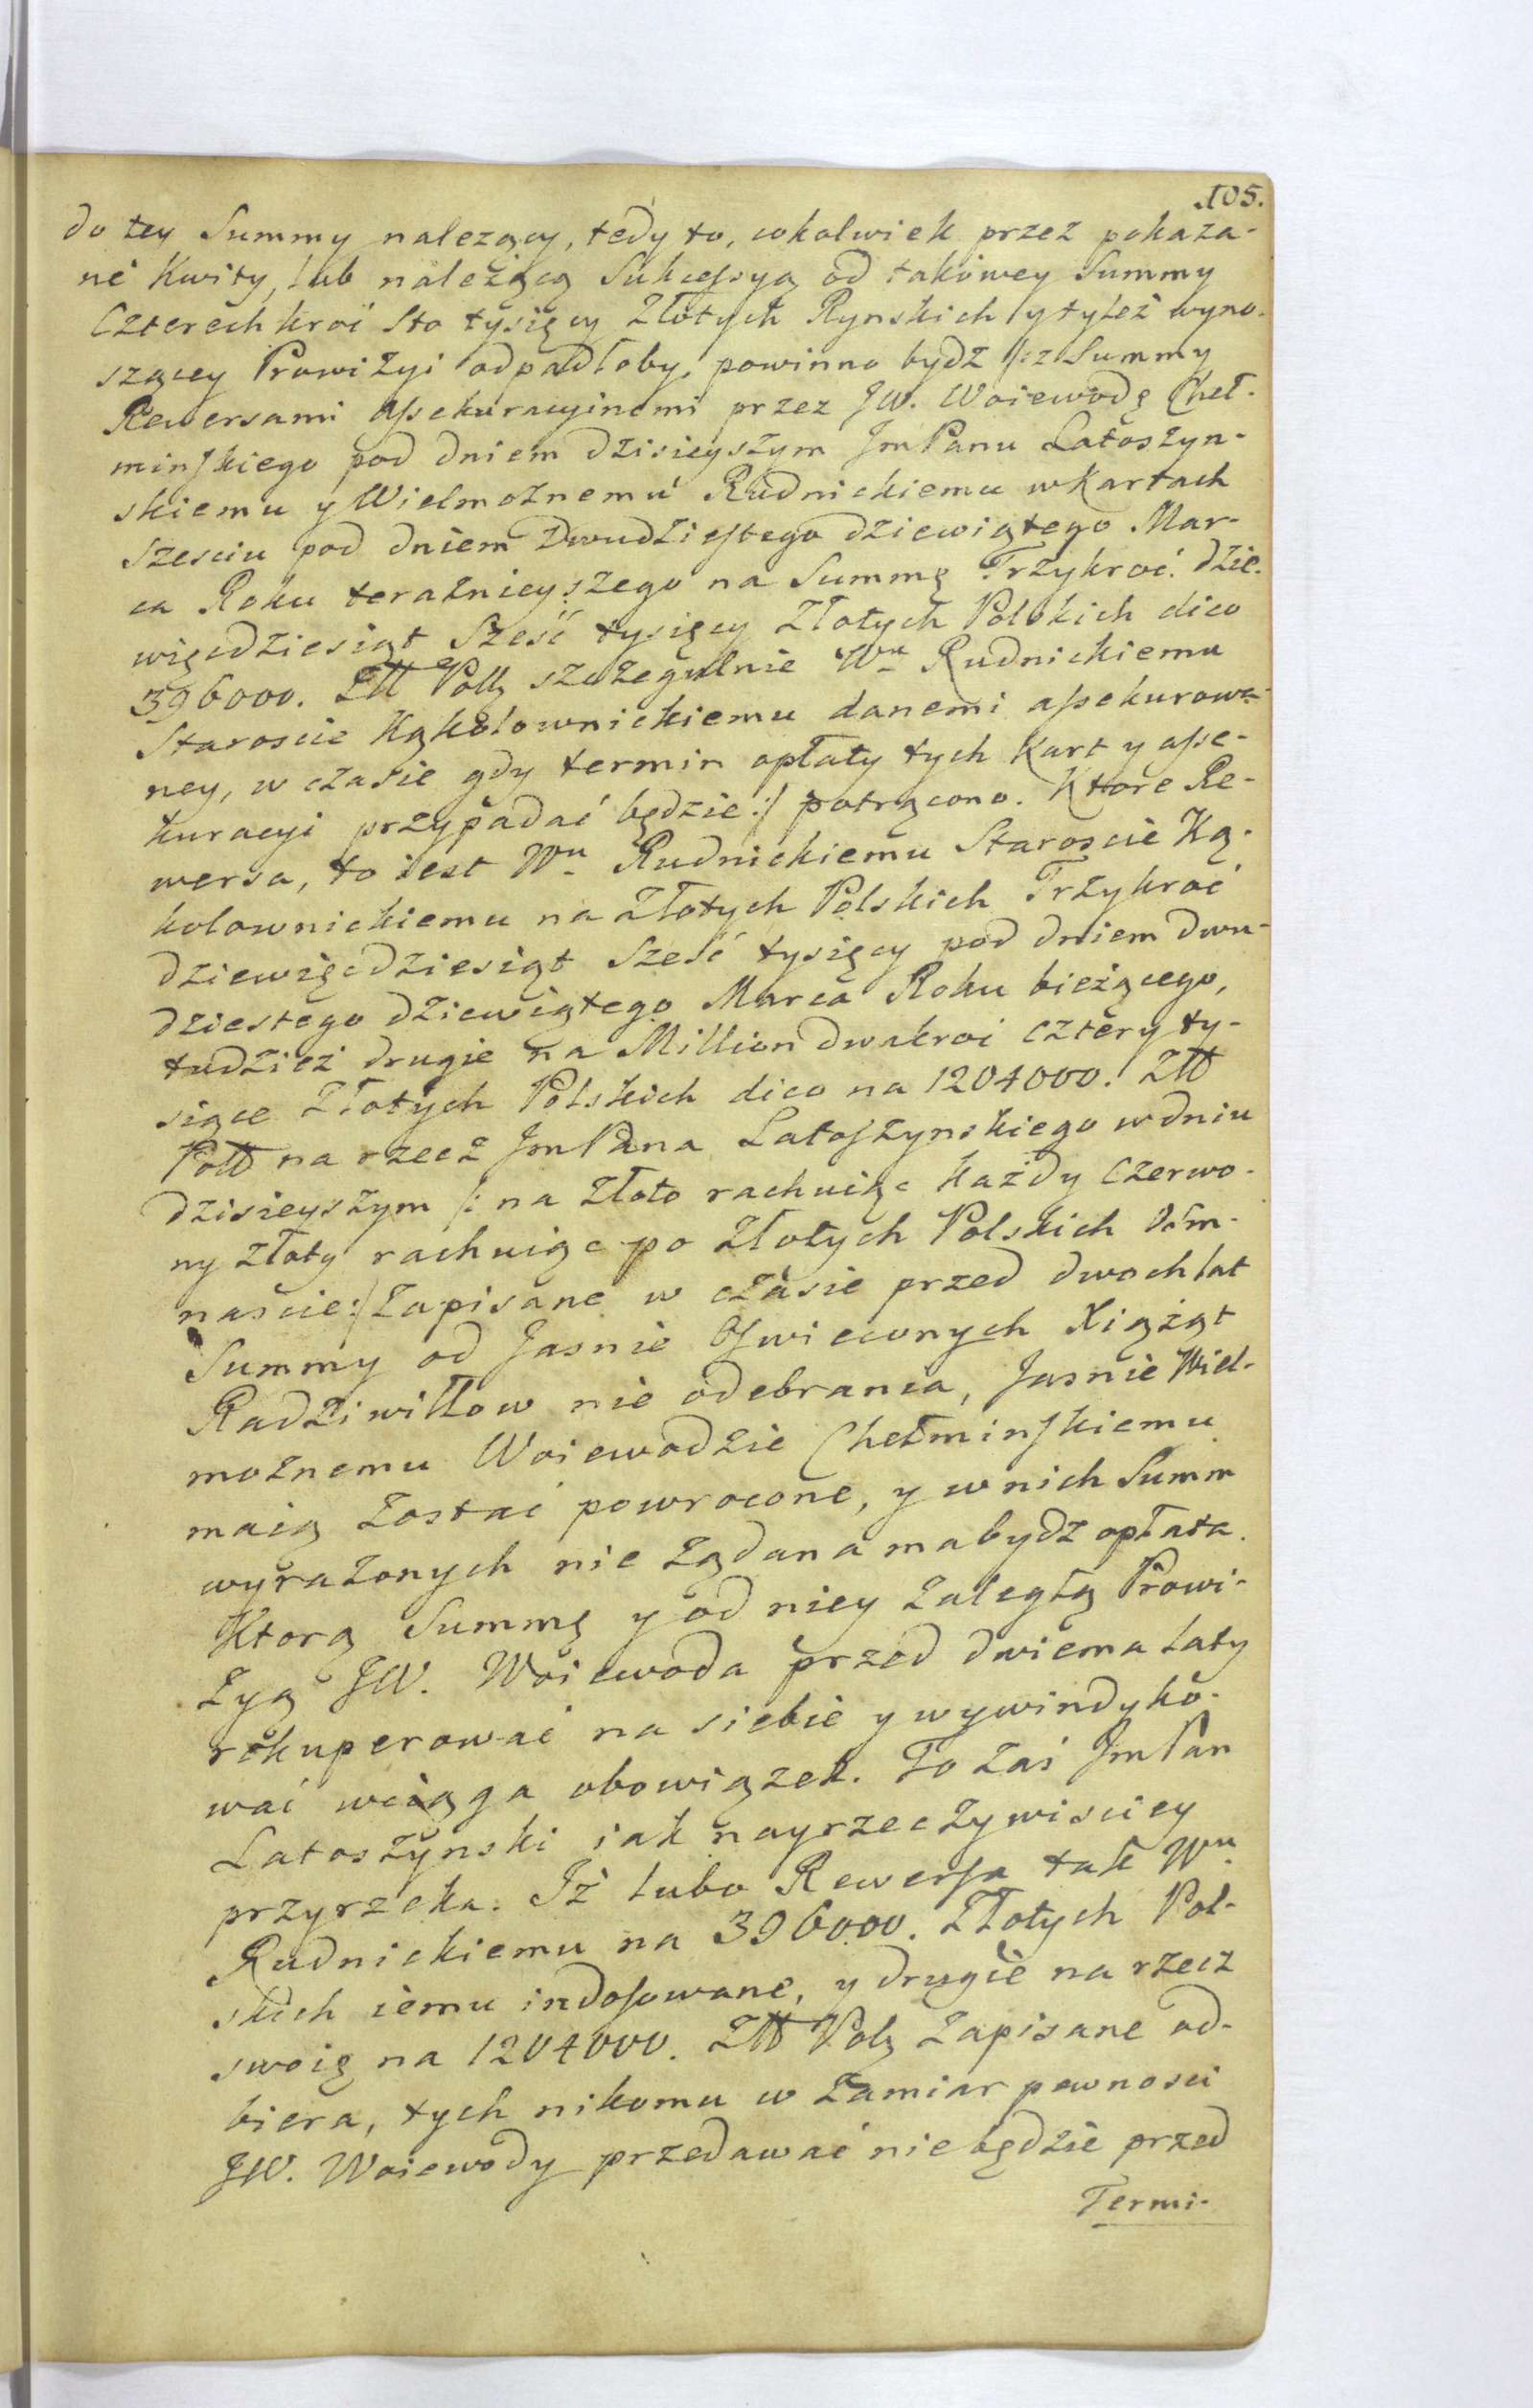 105.
do tey Summy nalezący, tedy to, cokolwiek przez pokaza-
né Kwity, lub należącą Sukcessyą od takowey Summy
Czterech kroć Sto tysięcy Złotych Rynskich y tyleż wyno-
szącey Prowizyi odpadłoby, powinno bydz /: z Summy
Rewersami Assekuracyinemi przez JW. Woiewodę Cheł-
minskiego pod dniem dzisieyszym JmPanu Latoszyn-
skiemu y Wielmoznemu Rudnickiemu w Kartach
Szesciu pod dniem Dwudziestego dziewiątego Mar-
ca Roku teraznieyszego na Summę Trzykroć dzie-
więcdziesiąt Sześć tysięcy Złotych Polskich dico
396000. Złł Pollz szczegulnie Wu Rudnickiemu
Staroscie Kąkolownickiemu danemi assekurowa-
ney, w czasie gdy termin opłaty tych Kart y asse-
kuracyi przypadać będzie :/ potrącono. Ktore Re-
wersa, to iest Wu Rudnickiemu Staroscie Ką-
kolownickiemu na Złotych Polskich Trzykroć
dziewięcdziesiąt Sześć tysięcy pod dniem dwu-
dziestego dziewiątego Marca Roku bieżącego,
tudzież drugie na Million dwakroć cztery ty-
siące Złotych Polskich dico na 1204000. Złł
Poll na rzecz JmPana Latoszynskiego w dniu
dzisieyszym /: na Złoto rachuiąc każdy Czerwo-
ny złoty rachuiąc po Złotych Polskich Ośm-
naście :/ Zapisane w czasie przed dwoch lat
Summy od Jasnie Oswieconych Xiążąt
Radziwiłłow nie odebrania, Jasnie Wiel-
moznemu Woiewodzie Chełminskiemu
maią Zostać powrocone, y w nich Summ
wyrazonych nie Ządana ma bydz opłata.
Ktorą Summę y od niey Zaległą Prowi-
Zyą JW. Woiewoda przed dwiema laty
rekuperować na siebie y wywindyko-
wać wciąga obowiązek. To Zaś JmPan
Latoszynski iak nayrzeczywisciey
przyrzeka. Iż lubo Rewersa tak Wu
Rudnickiemu na 396000. Złotych Pol-
skich iemu indosowane, y drugie na rzecz
swoię na 1204000. Złł Polz Zapisane od-
biera, tych nikomu w Zamiar pewnosci
JW. Woiewody przedawać niebędzie przed
Termi-